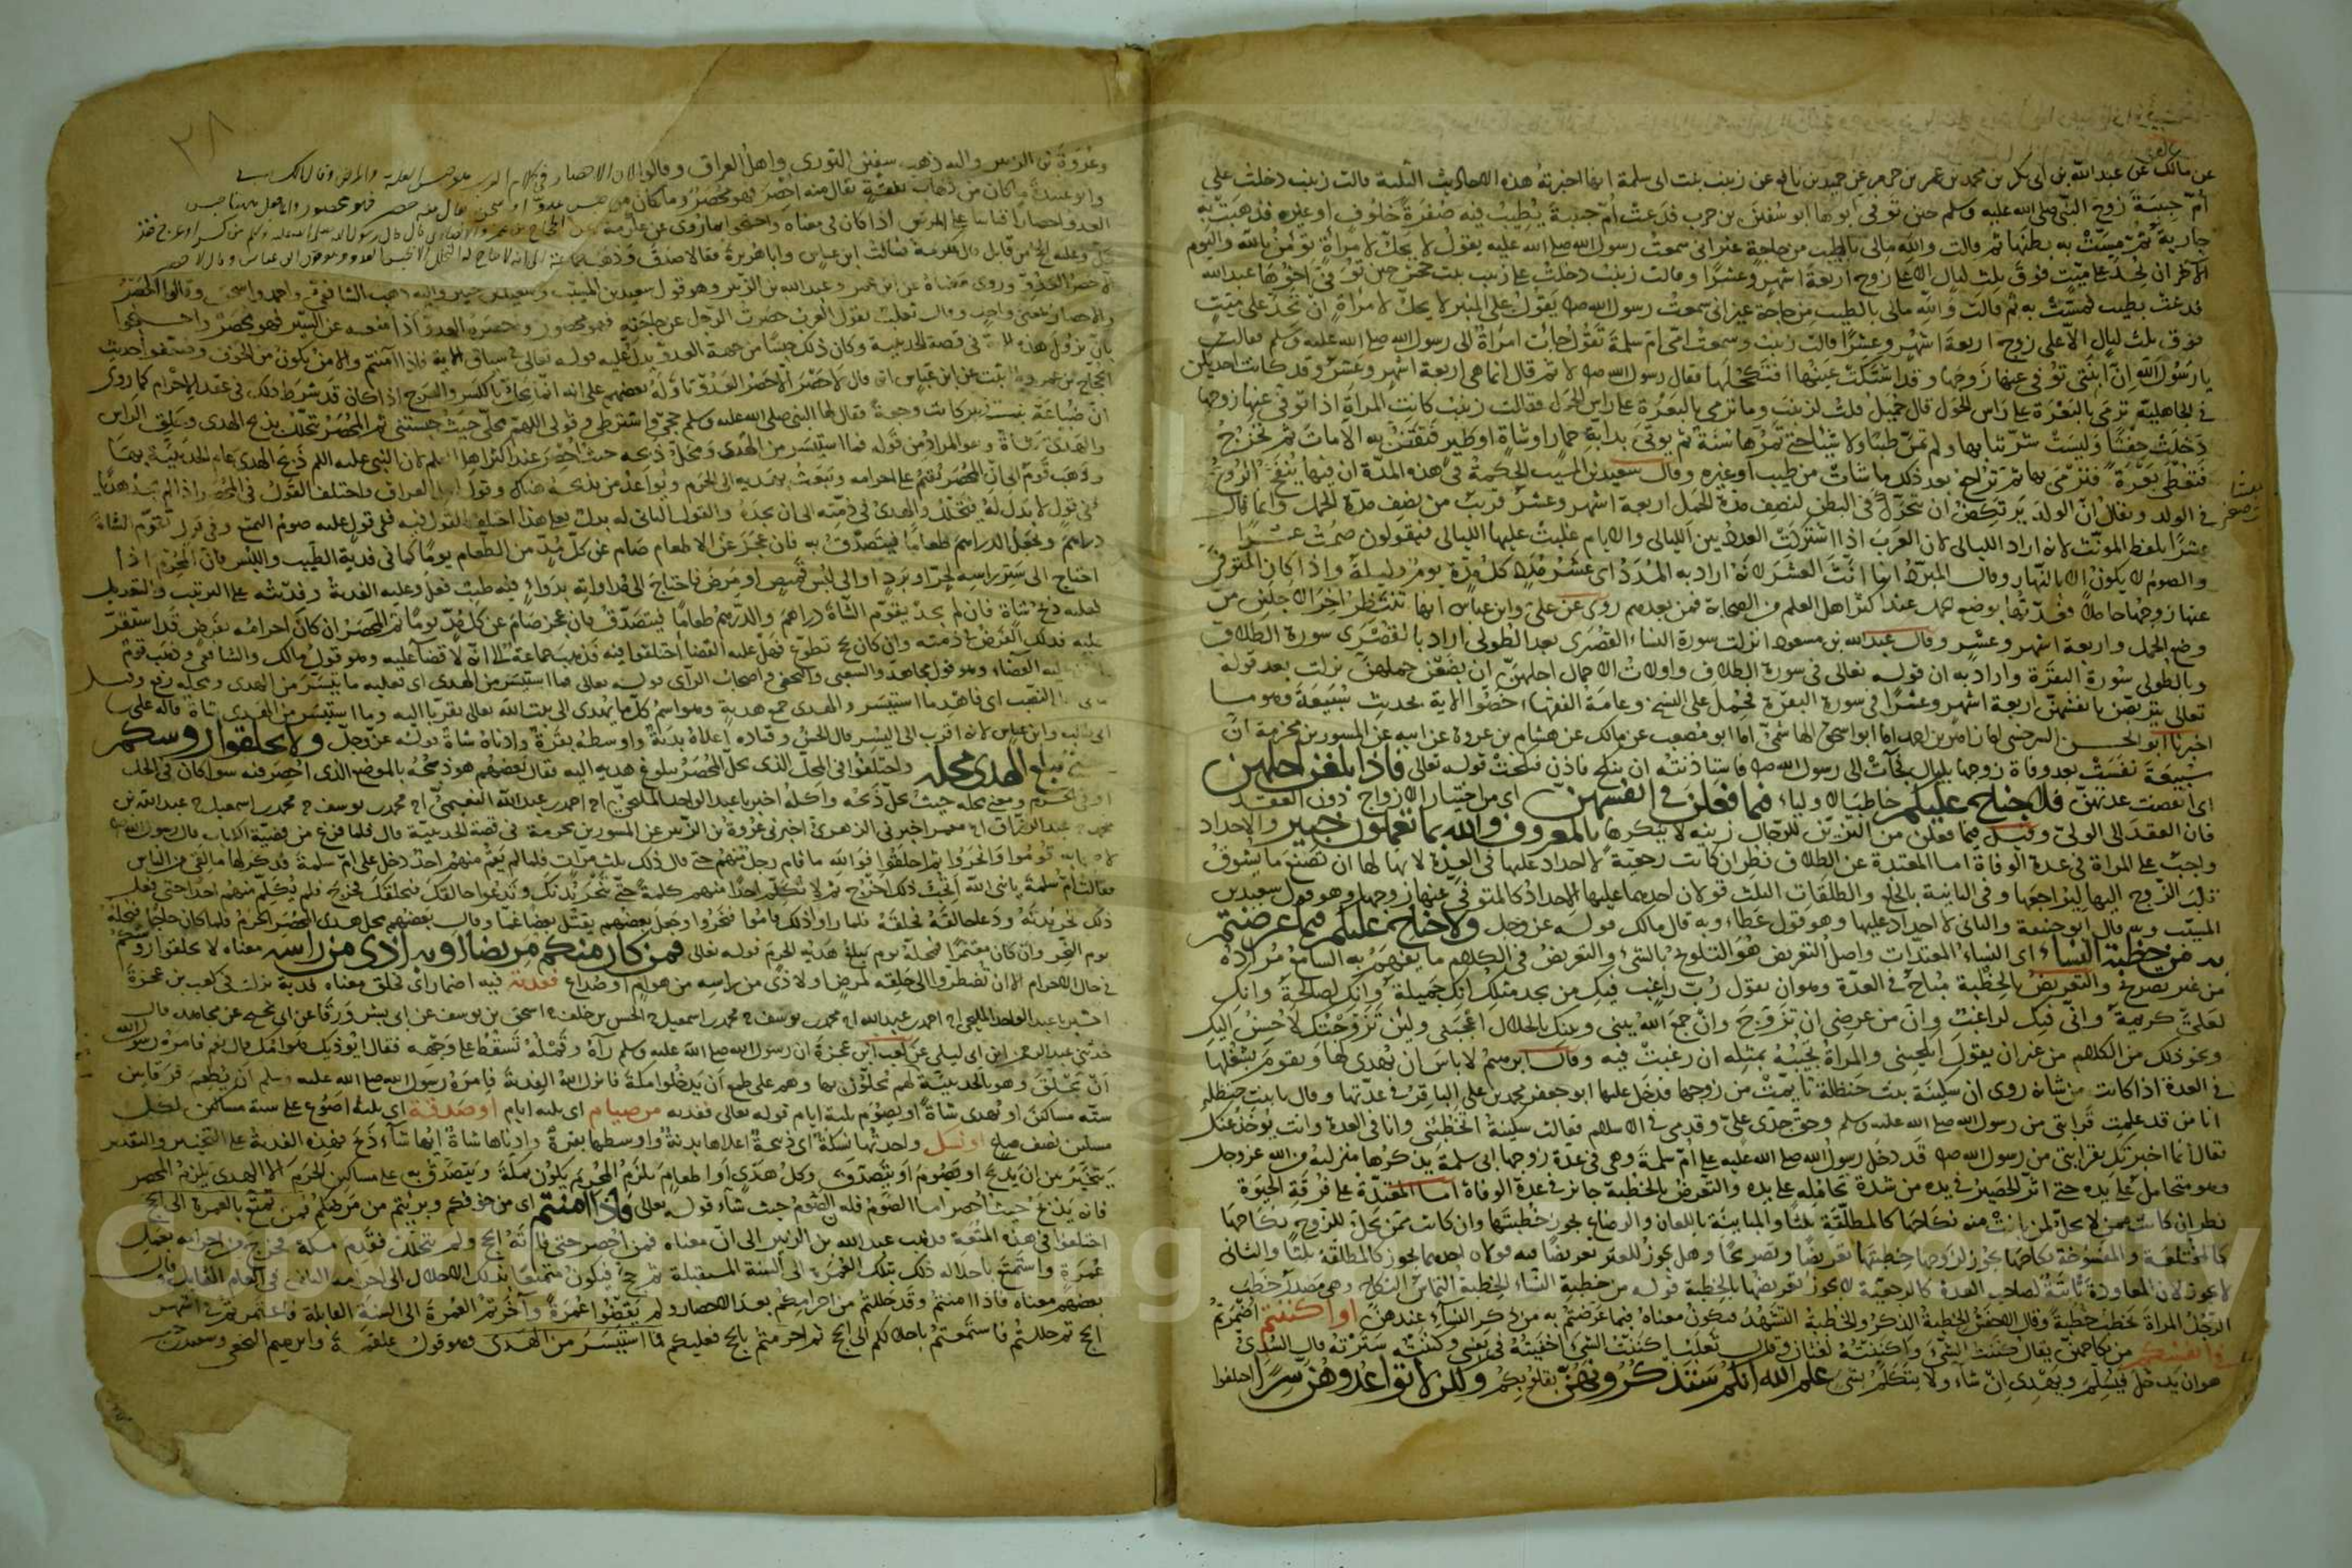 عن مالك عن عبد الله بن ابى بكر بن محمد بن عمر بن حزم عن حميد بن نافع عن زينب بنت ابى سلمة انها اخبرته هذه الاحاديث الثلثة قالت زينب دخلت على
أم حبيبة زوج النبى صلى الله عليه وسلم حين توفى ابوها ابو سفين بن حرب فدعت أم حبيبة بطيب فيه صفرة خلوف او غيره فدهنت به
جارية ثم مست به بطنها ثم قالت والله مالى بالطيب من حاجة غير انى سمعت رسول الله صلى الله عليه يقول لا يحل لامرأة تؤمن بالله واليوم
الآخر ان تحد على ميت فوق ثلث ليال الا على زوج اربعة اشهر وعشرا وقالت زينب دخلت على زينب بنت جحش حين توفى اخوها عبد الله
فدعت بطيب فمست به ثم قالت والله مالى بالطيب من حاجة غير انى سمعت رسول الله صلم يقول على المنبر لا يحل لامرأة ان تحد على ميت
فوق ثلث ليال الا على زوج اربعة اشهر وعشرا قالت زينب وسمعت امى ام سلمة تقول جاءت امرأة الى رسول الله صلى الله عليه وسلم فقالت
يا رسول الله ان ابنتى توفى عنها زوجها وقد اشتكت عينها أفنكحلها فقال رسول الله صلم لا ثم قال انما هى اربعة اشهر وعشر وقد كانت احديكن
فى الجاهلية ترمى بالبعرة على راس الحول قال حميد قلت لزينب وما ترمى بالبعرة على راس الحول فقالت زينب كانت المرأة اذا توفى عنها زوجها
دخلت حفشا ولبست شر ثيابها ولم تمس طيبا ولا شيئا حتى تمر بها سنة ثم يؤتى بدابة حمار او شاة او طير فتفتض به الامات ثم تخرج
فتعطى بعرة فترمى بها ثم تراجع بعد ذلك ما شات من طيب او غيره وقال سعيد بن المسيب الحكمة فى هذه المدة ان فيها ينفخ الروح
فى الولد ويقال ان الولد يرتكض ان يتحرك فى البطن لنصف مدة الحمل اربعة اشهر وعشر قريب من نصف مدة الحمل وانما قال
عشرا بلفظ المونث لانه اراد الليالى لان العرب اذا اشتركت العدد بين الليالى والايام غلبت عليها الليالى فيقولون صمت عشرا
والصوم لا يكون الا بالنهار وقال المبرد انما انث العشر لانه اراد به المدد اى عشر مدد كل مدة يوم وليلة واذا كان المتوفى
عنها زوجها حاملا فعدتها بوضع الحمل عند اكثر اهل العلم من الصحابة فمن بعدهم روى عن على وابن عباس انها تنتظر آخر الاجلين من
وضع الحمل واربعة اشهر وعشر وقال عبد الله بن مسعود انزلت سورة النساء القصرى بعد الطولى اراد بالقصرى سورة الطلاق
وبالطولى سورة البقرة واراد به ان قوله تعالى فى سورة الطلاق واولات الاحمال اجلهن ان يضعن حملهن نزلت بعد قوله
تعالى يتربصن بانفسهن اربعة اشهر وعشرا فى سورة البقرة فحمل على النسخ وعامة الفقهاء خصوا الآية بحديث سبيعة وهو ما
اخبرنا ابو الحسن السرخسى انا زاهر بن احمد انا ابو اسحق الهاشمى انا ابو مصعب عن مالك عن هشام بن عروة عن ابيه عن المسور بن مخرمة ان
سبيعة نفست بعد وفاة زوجها بليال فجآت الى رسول الله صلم فاستاذنته ان ينكح فاذن فنكحت قوله تعالى فاذا بلغن اجلهن
اى انقضت عدتهن فلا جناح عليكم خاطب الاولياء فيما فعلن فى انفسهن اى من اختيار الازواج دون العقد
فان العقد الى الولى وقيل فيما فعلن من التزين للرجال زينة لا ينكرها بالمعروف والله بما تعملون خبير والاحداد
واجب على المرأة فى عدة الوفاة اما المعتدة عن الطلاق نظر ان كانت رجعية لا احداد عليها فى العدة لانها لها ان تصنع ما يشوق
قلب الزوج اليها ليراجعها وفى البائنة بالخلع والطلقات الثلث قولان احدهما عليها الاحداد كالمتوفى عنها زوجها وهو قول سعيد بن
المسيب وبه قال ابو حنيفة والثانى لا احداد عليها وهو قول عطاء وبه قال مالك قوله عز وجل ولا جناح عليكم فيما عرضتم
به من خطبة النساء اى النساء المعتدات واصل التعريض هو التلويح بالشىء والتعريض فى الكلام ما يفهم به السامع مراده
من غير تصريح والتعريض بالخطبة مباح فى العدة وهو ان يقول رب راغب فيك من يجد مثلك انك جميلة وانك لصالحة وانك
لعلى كريمة وانى فيك لراغب وان من غرضى ان تزوج وان جمع الله بينى وبينك بالحلال اعجبنى ولئن تزوجتك لاحسنن اليك
ونحو ذلك من الكلام من غير ان يقول انكحينى والمرأة تجيبه بمثله ان رغبت فيه وقال ابرهيم لا باس ان يهدى لها ويقوم بشغلها
فى العدة اذا كانت من شانه روى ان سكينة بنت حنظلة تايمت من زوجها فدخل عليها ابو جعفر محمد بن على الباقر فى عدتها وقال يا بنت حنظلة
انا من قد علمت قرابتى من رسول الله صلى الله عليه وسلم وحق جدى على وقدمى فى الاسلام فقالت سكينة اتخطبنى وانا فى العدة وانت يؤخذ عنك
فقال انما اخبرتك بقرابتى من رسول الله صلم قد دخل رسول الله صلى الله عليه على أم سلمة وهى فى عدة زوجها ابى سلمة يذكرها منزلته من الله عز وجل
وهو متحامل على يده حتى اثر الحصير فى يده من شدة تحامله على يده والتعريض بالخطبة جائز فى عدة الوفاة اما المعتدة على فرقة الحيوة
نظر ان كانت ممن لا يحل لمن بانت منه نكاحها كالمطلقة ثلثا والمباينة باللعان والرضاع يجوز خطبتها وان كانت ممن يحل للزوج نكاحها
كالمختلعة والمفسوخة نكاحها يجوز لزوجها خطبتها تعريضا وتصريحا وهل يجوز للغير تعريضا فيه قولان احدهما يجوز كالمطلقة ثلثا والثانى
لا يجوز لان المعاودة ثابتة لصاحب العدة كالرجعية لا يجوز تعريضها بالخطبة قوله من خطبة النساء الخطبة التماس النكاح وهى مصدر خطب
الرجل المرأة يخطب خطبة وقال الاخفش الخطبة الذكر والخطبة التشهد فيكون معناه فيما عرضتم به من ذكر النساء عندهن او اكننتم اضمرتم
فى انفسكم من نكاحهن يقال كننت الشىء واكننته لغتان وقال ثعلب اكننت الشىء اخفيته فى نفسى وكننته سترته قال السدى
هو ان يدخل فيسلم ويهدى ان شاء ولا يتكلم بشىء علم الله انكم ستذكرونهن بقلوبكم ولكن لا تواعدوهن سرا اختلفوا
٢٨
وعروة بن الزبير واليه ذهب سفين الثورى واهل العراق وقالوا لان الاحصار فى كلام العرب هو حبس العلة والمرض وقال
وابو عبيدة ما كان من ذهاب نفقة يقال منه احصر فهو محصر وما كان من حبس عدو او سجن يقال منه حصر فهو محصور
العدو احصارا قياسا على المرض اذا كان فى معناه واحتجوا بما روى عن عكرمة عن الحجاج بن عمرو الانصارى قال قال رسول الله صلى الله عليه وسلم من كسر او عرج فقد
حل وعليه الحج من قابل قال عكرمة فسالت ابن عباس وابا هريرة فقالا صدق وذهب
لا حصر الا حصر العدو وروى معناه عن ابن عمر وعبد الله بن الزبير وهو قول سعيد بن المسيب وسعيد بن جبير واليه ذهب الشافعى واحمد واسحق وقالوا الحصر
والاحصار بمعنى واحد وقال ثعلب تقول العرب حصرت الرجل عن حاجته فهو محصور وحصره العدو اذا منعه عن السير فهو محصر واحتجوا
بان نزول هذه الآية فى قصة الحديبية وكان ذلك حبسا من جهة العدو يدل عليه قوله تعالى فى سياق الآية فاذا امنتم والامن يكون من الخوف وضعفوا حديث
الحجاج بن عمرو بما ثبت عن ابن عباس انه قال لا حصر الا حصر العدو وتاوله بعضهم على انه انما يحل بالكسر والعرج اذا كان قد شرط ذلك فى عقد الاحرام كما روى
ان ضباعة بنت الزبير كانت وجعة فقال لها النبى صلى الله عليه وسلم حجى واشترطى وقولى اللهم محلى حيث حبستنى ثم المحصر يتحلل بذبح الهدى وحلق الراس
والهدى شاة وهو المراد من قوله فما استيسر من الهدى ومحل ذبحه حيث احصر عند اكثر اهل العلم لان النبى عليه السلم ذبح الهدى عام الحديبية بها
وذهب قوم الى ان المحصر يقيم على احرامه ويبعث بهديه الى الحرم ويواعد من يذبحه هناك وهو قول اهل العراق واختلف القول فى المحصر اذا لم يجد هديا
ففى قول لا بدل له فيتحلل والهدى فى ذمته الى ان يجد والقول الثانى له بدل فعلى هذا اختلف القول فيه ففى قول عليه صوم التمتع وفى قول تقوم الشاة
دراهم ويجعل الدراهم طعاما فيتصدق به فان عجز عن الاطعام صام عن كل مد من الطعام يوما كما فى فدية الطيب واللبس فان المحرم اذا
احتاج الى ستر راسه لحر او برد او الى لبس قميص او مرض فاحتاج الى مداواته بدواء فيه طيب فعل وعليه الفدية وفديته على الترتيب والتعديل
فعليه ذبح شاة فان لم يجد يقوم الشاة دراهم والدراهم طعاما فيتصدق به فان عجز صام عن كل مد يوما ثم المحصر ان كان احرامه بفرض قد استقر
عليه فذلك الفرض فى ذمته وان كان بحج تطوع فهل عليه القضا اختلفوا فيه فذهب جماعة الى انه لا قضا عليه وهو قول مالك والشافعى وذهب قوم
الى ان عليه القضاء وهو قول مجاهد والشعبى والنخعى واصحاب الرأى قوله تعالى فما استيسر من الهدى اى فعليه ما تيسر من الهدى ومحله رفع وقيل
ما فى النصب اى فاهد ما استيسر والهدى جمع هدية وهو اسم كل ما يهدى الى بيت الله تعالى تقربا اليه وما استيسر من الهدى شاة قاله على
ابن ابى طالب وابن عباس لانه اقرب الى اليسر قال الحسن وقتاده اعلاه بدنة واوسطه بقرة وادناه شاة قوله عز وجل ولا تحلقوا روسكم
حتى يبلغ الهدى محله واختلفوا فى المحل الذى يحل المحصر ببلوغ هديه اليه فقال بعضهم هو ذبحه بالموضع الذى احصر فيه سوا كان فى الحل
او فى الحرم ومعنى محله حيث يحل ذبحه واكله اخبرنا عبد الواحد المليحى انا احمد بن عبد الله النعيمى انا محمد بن يوسف نا محمد بن اسمعيل نا عبد الله بن
محمد نا عبد الرزاق انا معمر اخبرنى الزهرى اخبرنى عروة بن الزبير عن المسور بن مخرمة فى قصة الحديبية قال فلما فرغ من قضية الكتاب قال رسول الله
لاصحابه قوموا وانحروا ثم احلقوا فوالله ما قام رجل منهم حتى قال ذلك ثلث مرات فلما لم يقم منهم احد دخل على ام سلمة فذكر لها ما لقى من الناس
فقالت ام سلمة يا نبى الله اتحب ذلك اخرج ثم لا تكلم احدا منهم كلمة حتى تنحر بدنك وتدعوا حالقك فيحلقك فخرج فلم يكلم منهم احدا حتى فعل
ذلك نحر بدنه ودعا حالقه فحلقه فلما راوا ذلك قاموا فنحروا وجعل بعضهم يقتل بعضا غما وقال بعضهم محل هدى المحصر الحرم فلما كان حاجا فمحله
يوم النحر وان كان معتمرا فمحله يوم يبلغ هديه الحرم قوله تعالى فمن كان منكم مريضا او به اذى من راسه معناه لا تحلقوا روسكم
فى حال الاحرام الا ان تضطروا الى حلقه لمرض او لاذى من راسه من هوام او صداع ففدية فيه اضمار اى فحلق معناه فدية نزلت فى كعب بن عجرة
اخبرنا عبد الواحد المليحى انا احمد بن عبد الله انا محمد بن يوسف نا محمد بن اسمعيل نا الحسن بن خلف نا اسحق بن يوسف عن ابى بشر ورقا عن ابى نجيح عن مجاهد قال
حدثنى عبد الرحمن ابن ابى ليلى عن كعب ابن عجرة ان رسول الله صلى الله عليه وسلم رآه وقمله تسقط على وجهه فقال ايوذيك هوامك قال نعم فامره رسول الله
ان يحلق وهو بالحديبية لم يبين لهم انهم يحلون بها وهم على طمع ان يدخلوا مكة فانزل الله الفدية فامره رسول الله صلى الله عليه وسلم ان يطعم فرقا بين
ستة مساكن او يهدى شاة او يصوم ثلثة ايام قوله تعالى ففديه من صيام اى ثلثه ايام او صدقة اى ثلثة اصوع على ستة مساكين لكل
مسكين نصف صاع او نسك واحدتها نسكة اى ذبيحة اعلاها بدنة واوسطها بقرة وادناها شاة ايها شآء ذبح فهذه الفدية على التخيير والتقدير
يتخير بين ان يذبح او يصوم او يتصدق وكل هدى او اطعام يلزم المحرم يكون بمكة ويتصدق به على مساكين الحرم الا الهدى يلزم المحصر
فانه يذبح حيث احصر اما الصوم فله ان يصوم حيث شآء قوله تعالى فاذا امنتم اى من خوفكم وبرئتم من مرضكم فمن تمتع بالعمرة الى الحج
اختلفوا فى هذه المتعة فذهب عبد الله بن الزبير الى ان معناه فمن احصر حتى فاته الحج ولم يتحلل فقدم مكة فخرج من احرامه بعمل
عمرة واستمتع باحلاله ذلك بتلك العمرة الى السنة المستقبلة ثم حج فيكون متمتعا بذلك الاحلال الى احرامه الثانى فى العام القابل وقال
بعضهم معناه فاذا امنتم وقد حللتم من احرامكم بعد الاحصار ولم تقضوا عمرة وآخرتم العمرة الى السنة القابلة فاعتمرتم فى اشهر
الحج ثم حللتم فاستمتعتم باحلالكم الى الحج ثم احرمتم بالحج فعليكم فما استيسر من الهدى وهو قول علقمة وابرهيم النخعى وسعيد بن جبير